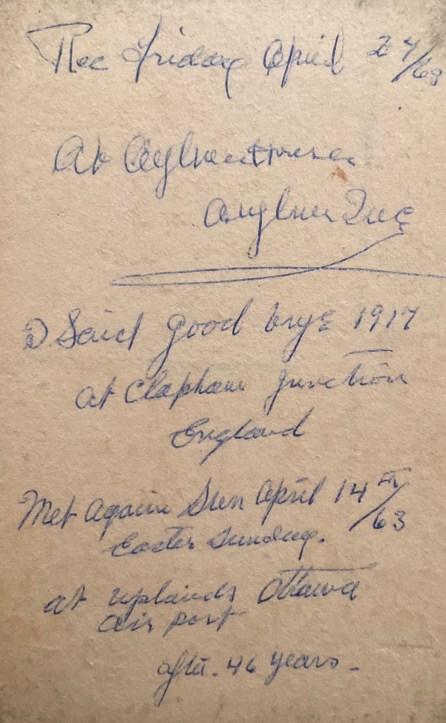 Rec Friday April 24/63
At Aylmer
Aylmer Que
I Said good bye 1917
at Clapham Junction
England
Met Again Sun April 14th/63
Easter Sunday.
at uplands Ottawa
air port
after. 46 years -